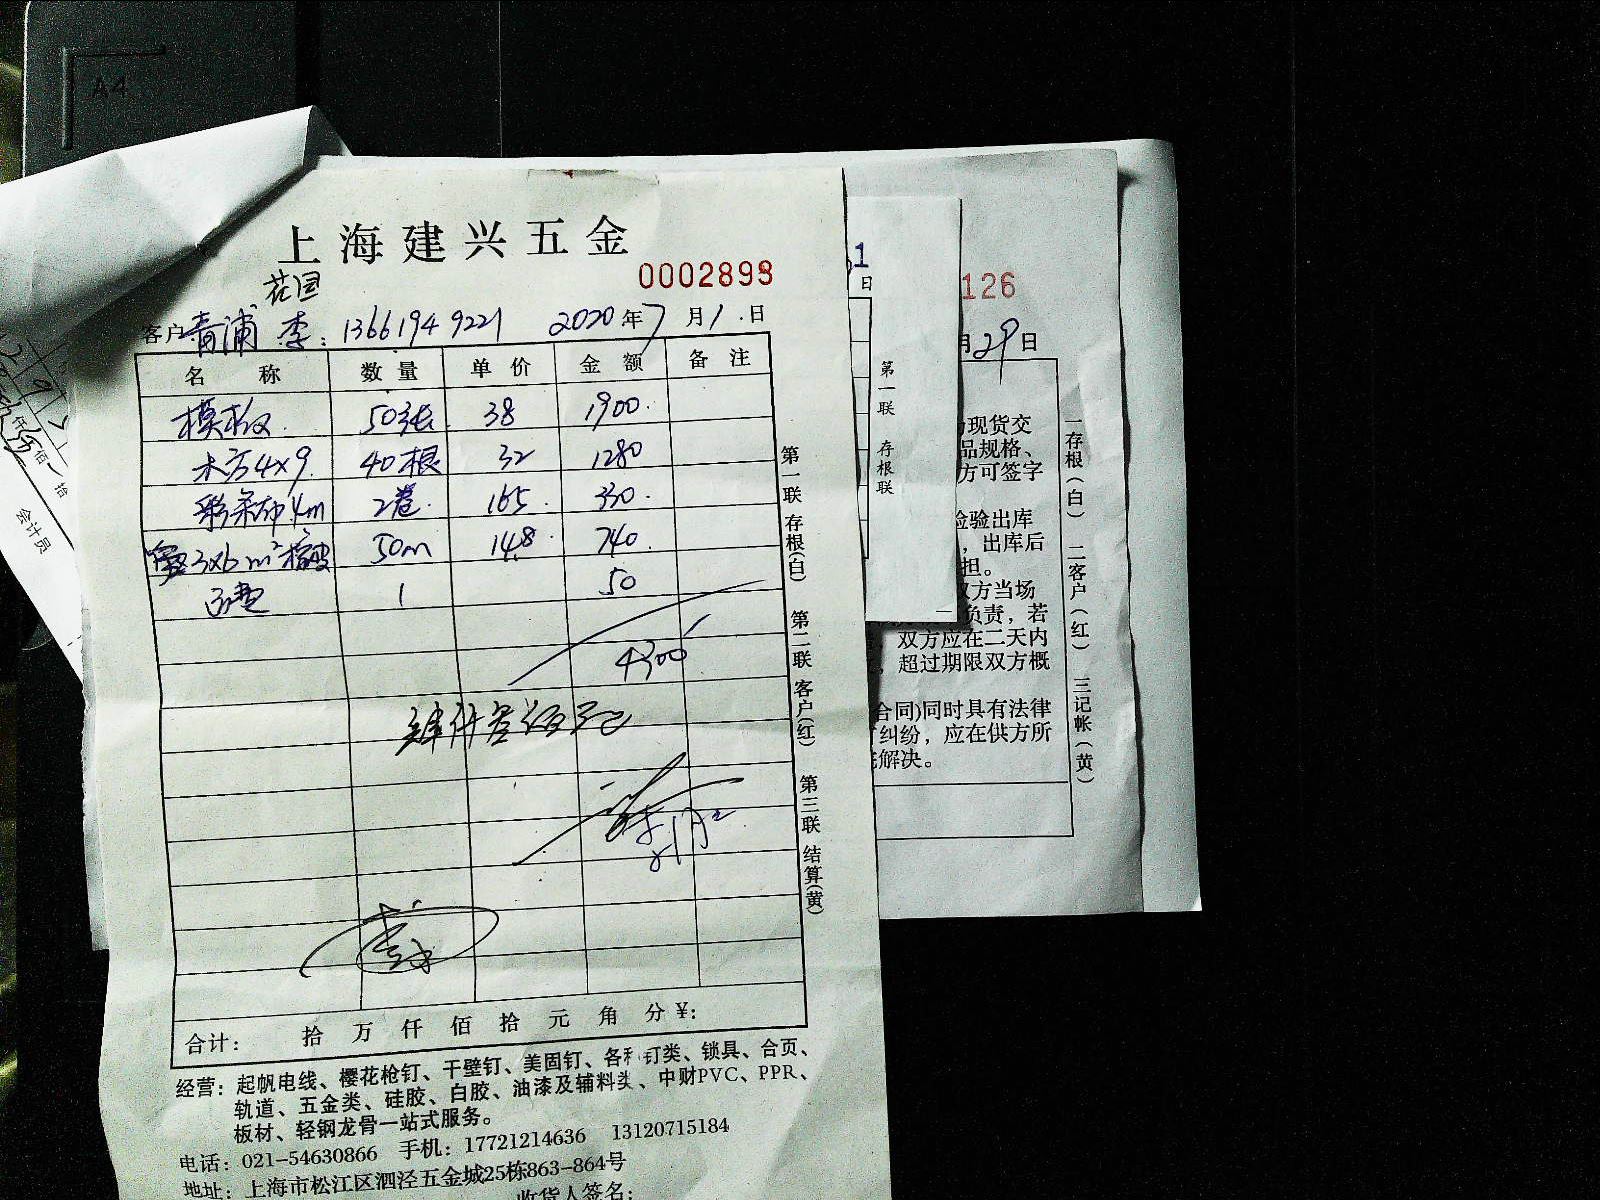 A4
上海建兴五金
0002898
花园
客户青浦 李：13661949221 2020年7月1日
名称 数量 单价 金额 备注
模板 50张 38 1900
木方4×9 40根 32 1280
彩条布4m 2卷 165 330
3×6m² 橡皮 50m 14.8 740
运费 1 50
4300
肆仟叁佰元正
合计： 拾 万 仟 佰 拾 元 角 分 ¥:
第一联 存根(白) 第二联 客户(红) 第三联 结算(黄)
经营：起帆电线、樱花枪钉、干壁钉、美固钉、各种钉类、锁具、合页、
轨道、五金类、硅胶、白胶、油漆及辅料类、中财PVC、PPR、
板材、轻钢龙骨一站式服务。
电话：021-54630866 手机：17721214636 13120715184
地址：上海市松江区泗泾五金城25栋863-864号
收货人签名：
1
日
第一联 存根联
126
月29日
现货交
品规格、
方可签字
检验出库
，出库后
担。
双方当场
负责，若
双方应在二天内
超过期限双方概
合同)同时具有法律
纠纷，应在供方所
解决。
一存根(白) 二客户(红) 三记帐(黄)
仟
佰
拾
会计员